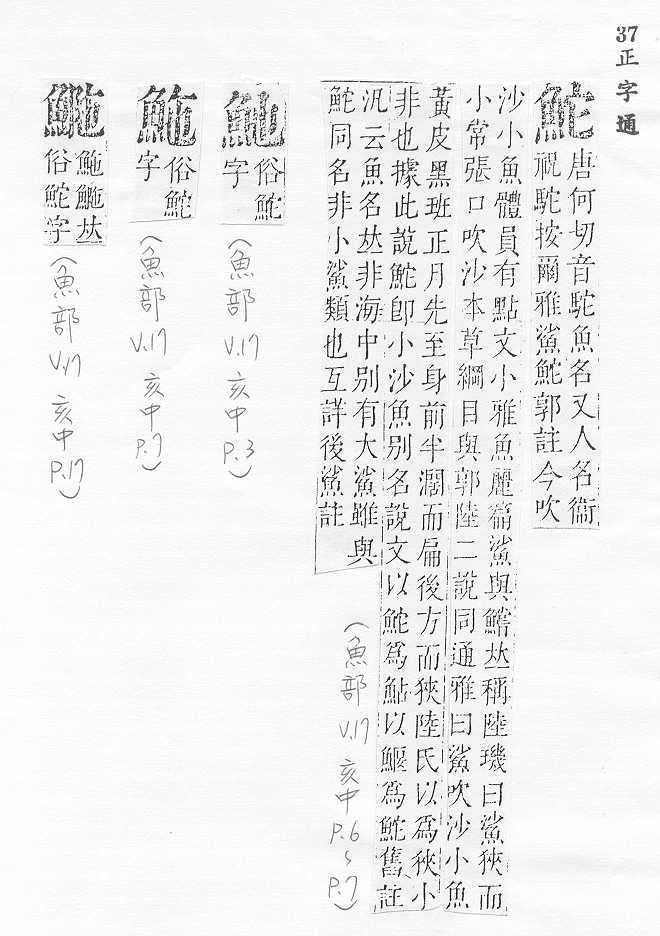 37 正字通
鮀
唐何切音駝魚名又人名衞
祝駝按爾雅鯊鮀郭註今吹
沙小魚體員有點文小雅魚麗篇鯊與鱨𠀤稱陸璣曰鯊狹而
小常張口吹沙本草綱目與郭陸二說同通雅曰鯊吹沙小魚
黃皮黑班正月先至身前半濶而扁後方而狹陸氏以爲狹小
非也據此說鮀卽小沙魚别名說文以鮀爲鮎以鰋爲鮀舊註
汎云魚名𠀤非海中别有大鯊雖與
鮀同名非小鯊類也互詳後鯊註
(魚部 V.17 亥中 P.6~P.7)
俗鮀
字
(魚部 V.17 亥中 P.3)
俗鮀
字
(魚部 V.17 亥中 P.7)
𠀤
俗鮀字
(魚部 V.17 亥中 P.17)